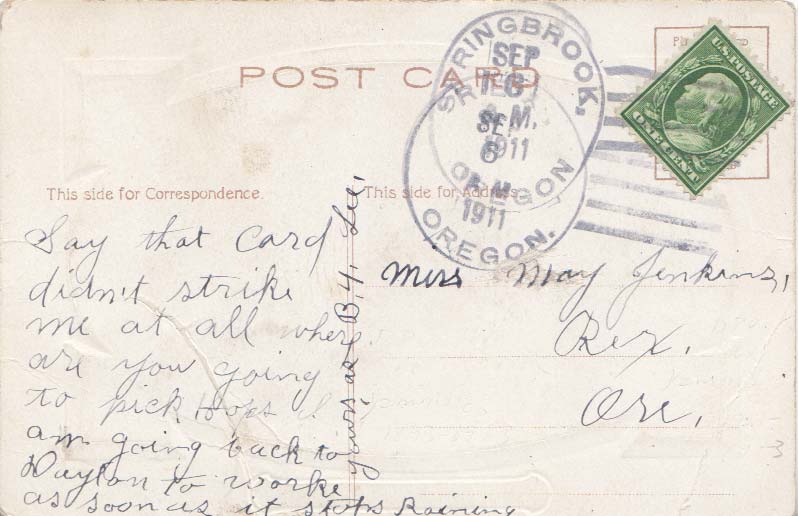 POST CARD
SPRINGBROOK,
SEP
6
A.M.
1911
OREGON
SEP
6
1911
OREGON.
U.S. POSTAGE
ONE CENT
This side for Correspondence.
This side for Address.
Say that Card
didn't strike
me at all where
are you going
to pick hops I
am going back to
Dayton to worke
as soon as it stops Raining
yours as B.Y.
Miss May Jenkins,
Rex,
Ore,